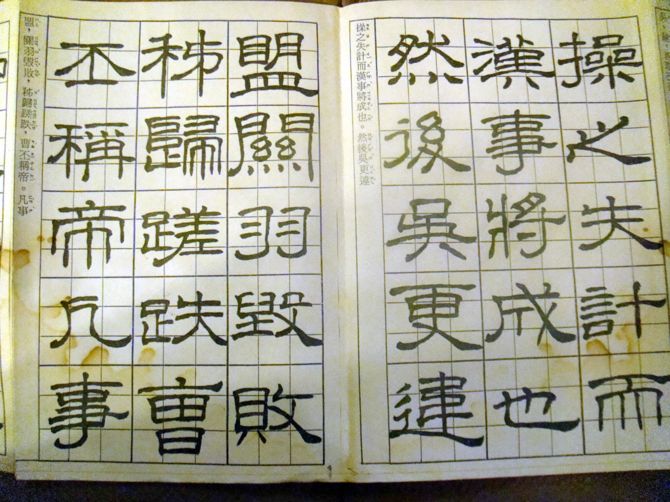 操之失計而
漢事將成也
然後吳更違
操之失計而漢事將成也。然後吳更違
盟關羽毀敗
秭歸蹉跌曹
丕稱帝凡事
盟，關羽毀敗，秭歸蹉跌，曹丕稱帝。凡事